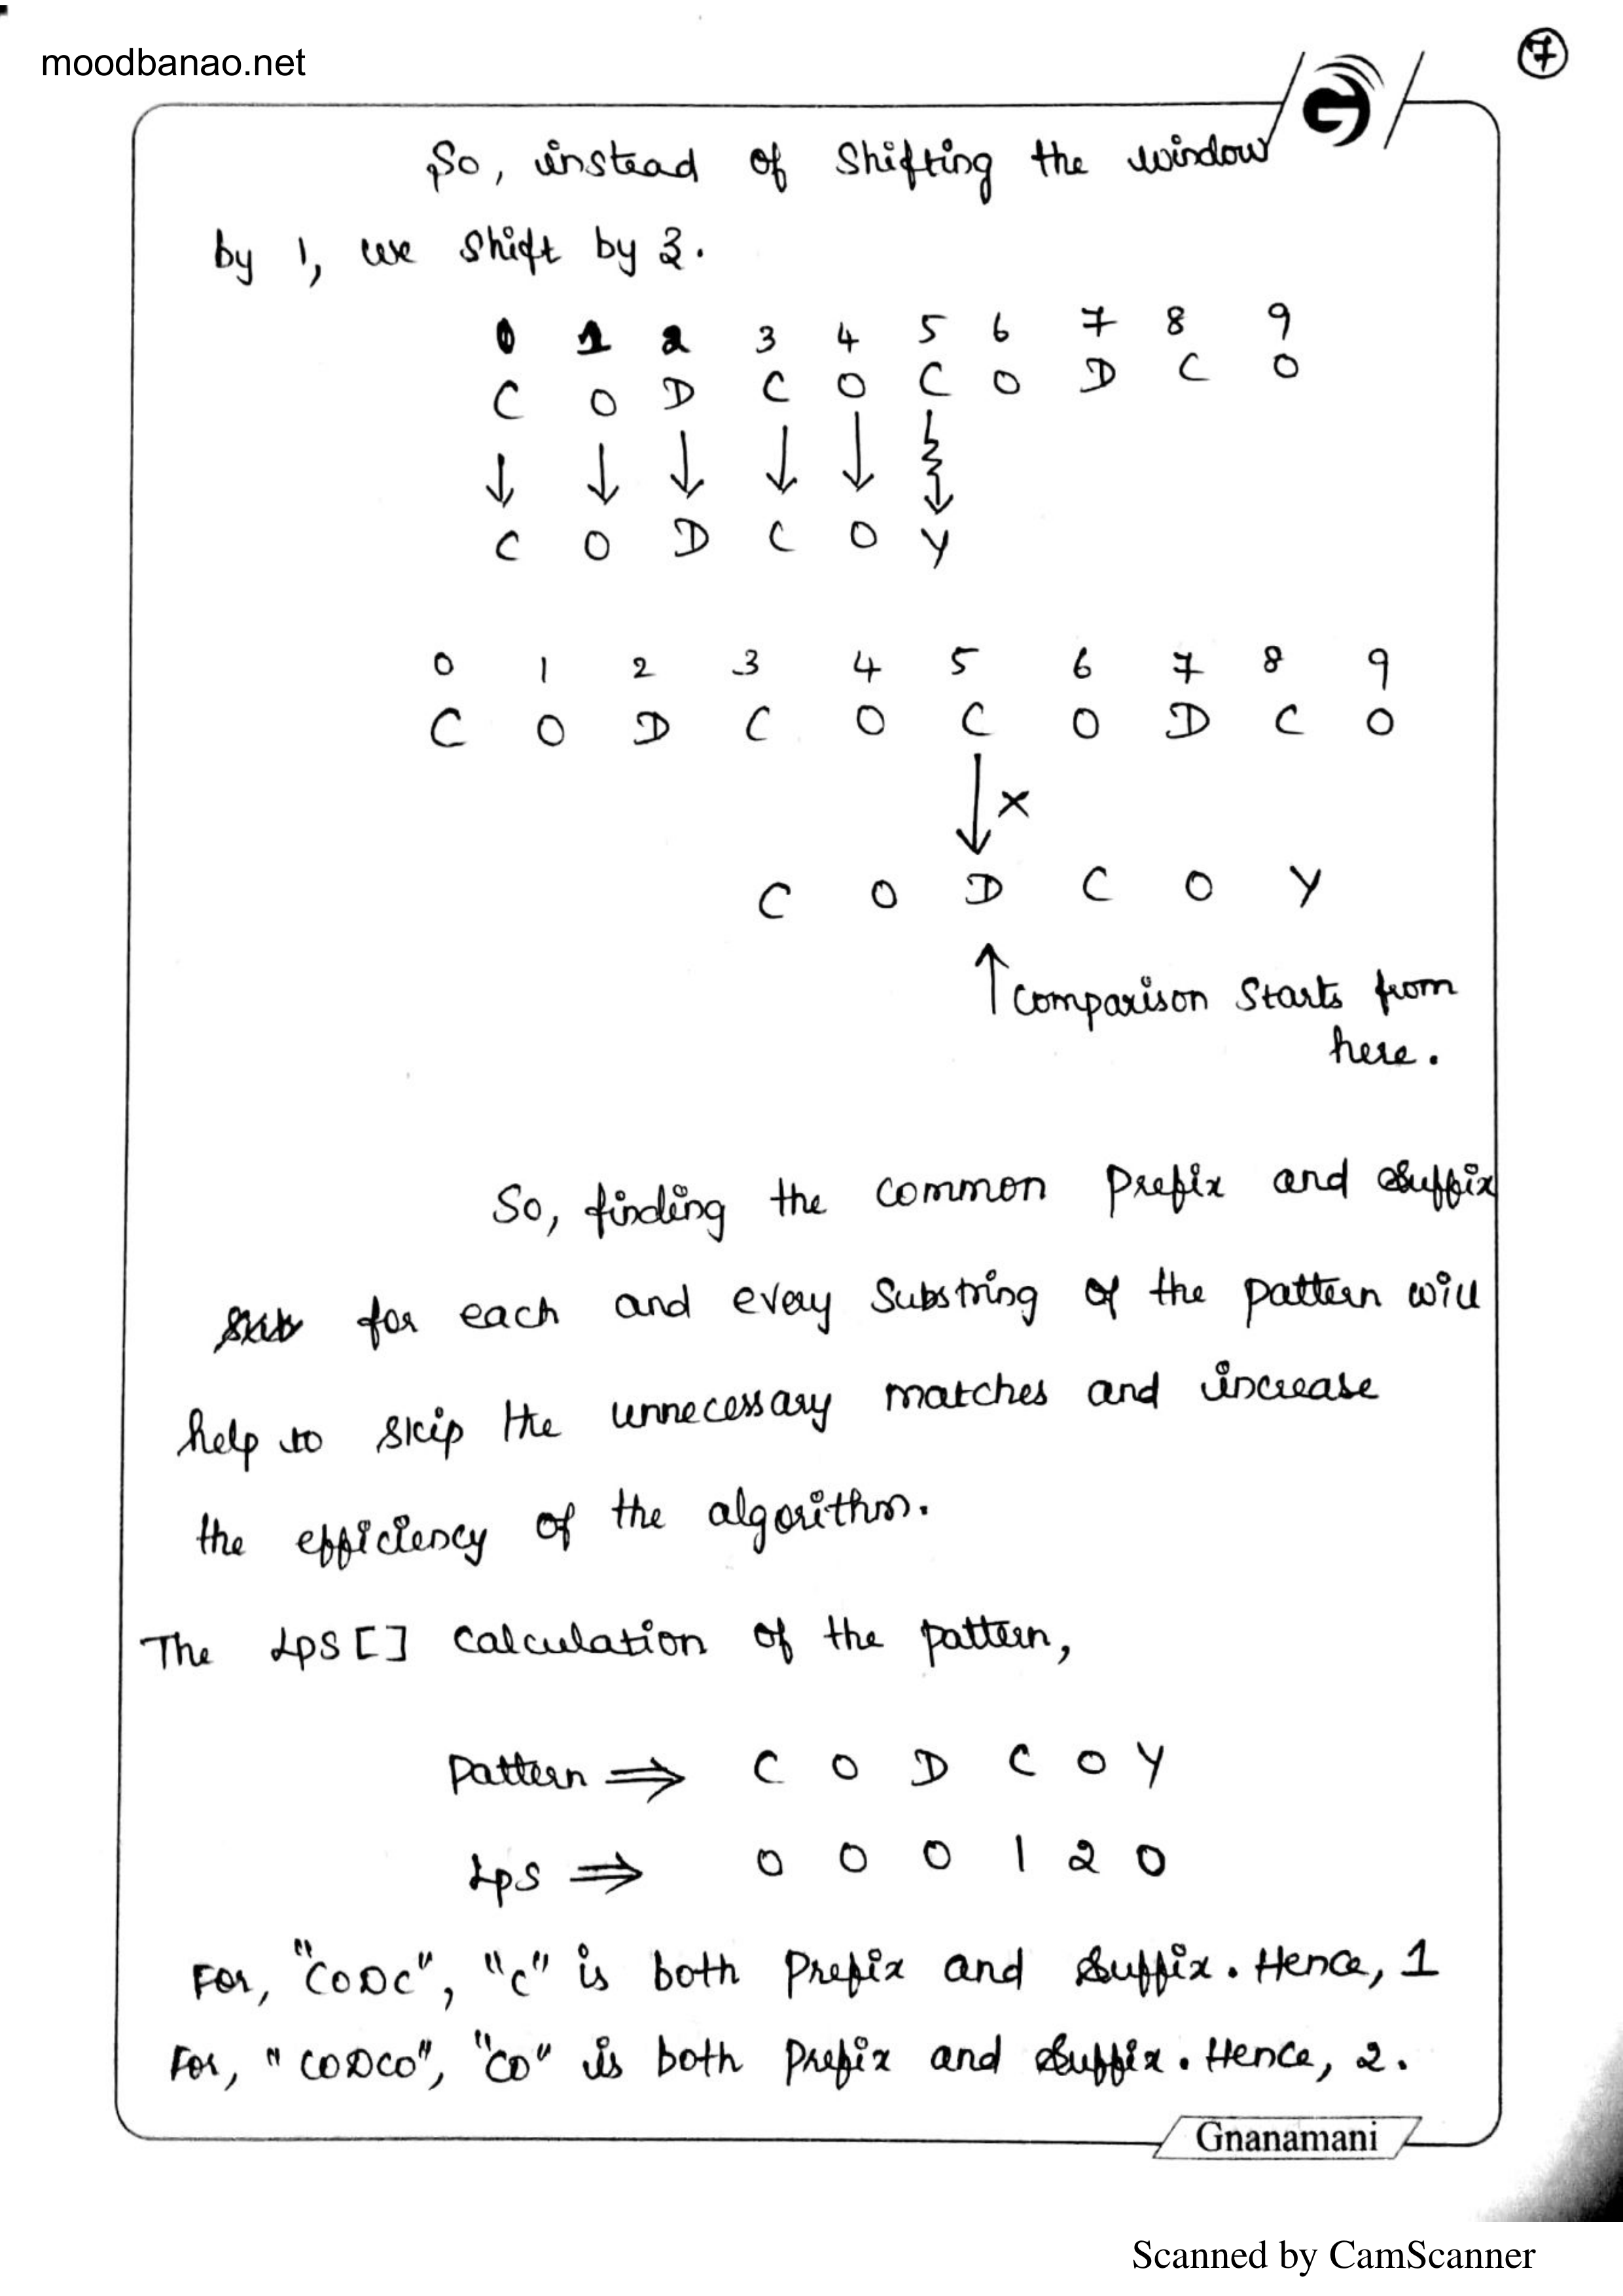 moodbanao.net
7
So, instead of shifting the window
by 1, we shift by 3.
0 1 2 3 4 5 6 7 8 9
C O D C O C O D C O
C O D C O Y
0 1 2 3 4 5 6 7 8 9
C O D C O C O D C O
x
C O D C O Y
Comparison starts from
here.
So, finding the common prefix and suffix
for each and every substring of the pattern will
help to skip the unnecessary matches and increase
the efficiency of the algorithm.
The Lps [ ] calculation of the pattern,
Pattern ⇒ C O D C O Y
Lps ⇒ 0 0 0 1 2 0
For, "CODC", "C" is both prefix and suffix. Hence, 1
For, "CODCO", "CO" is both prefix and suffix. Hence, 2.
Gnanamani
Scanned by CamScanner